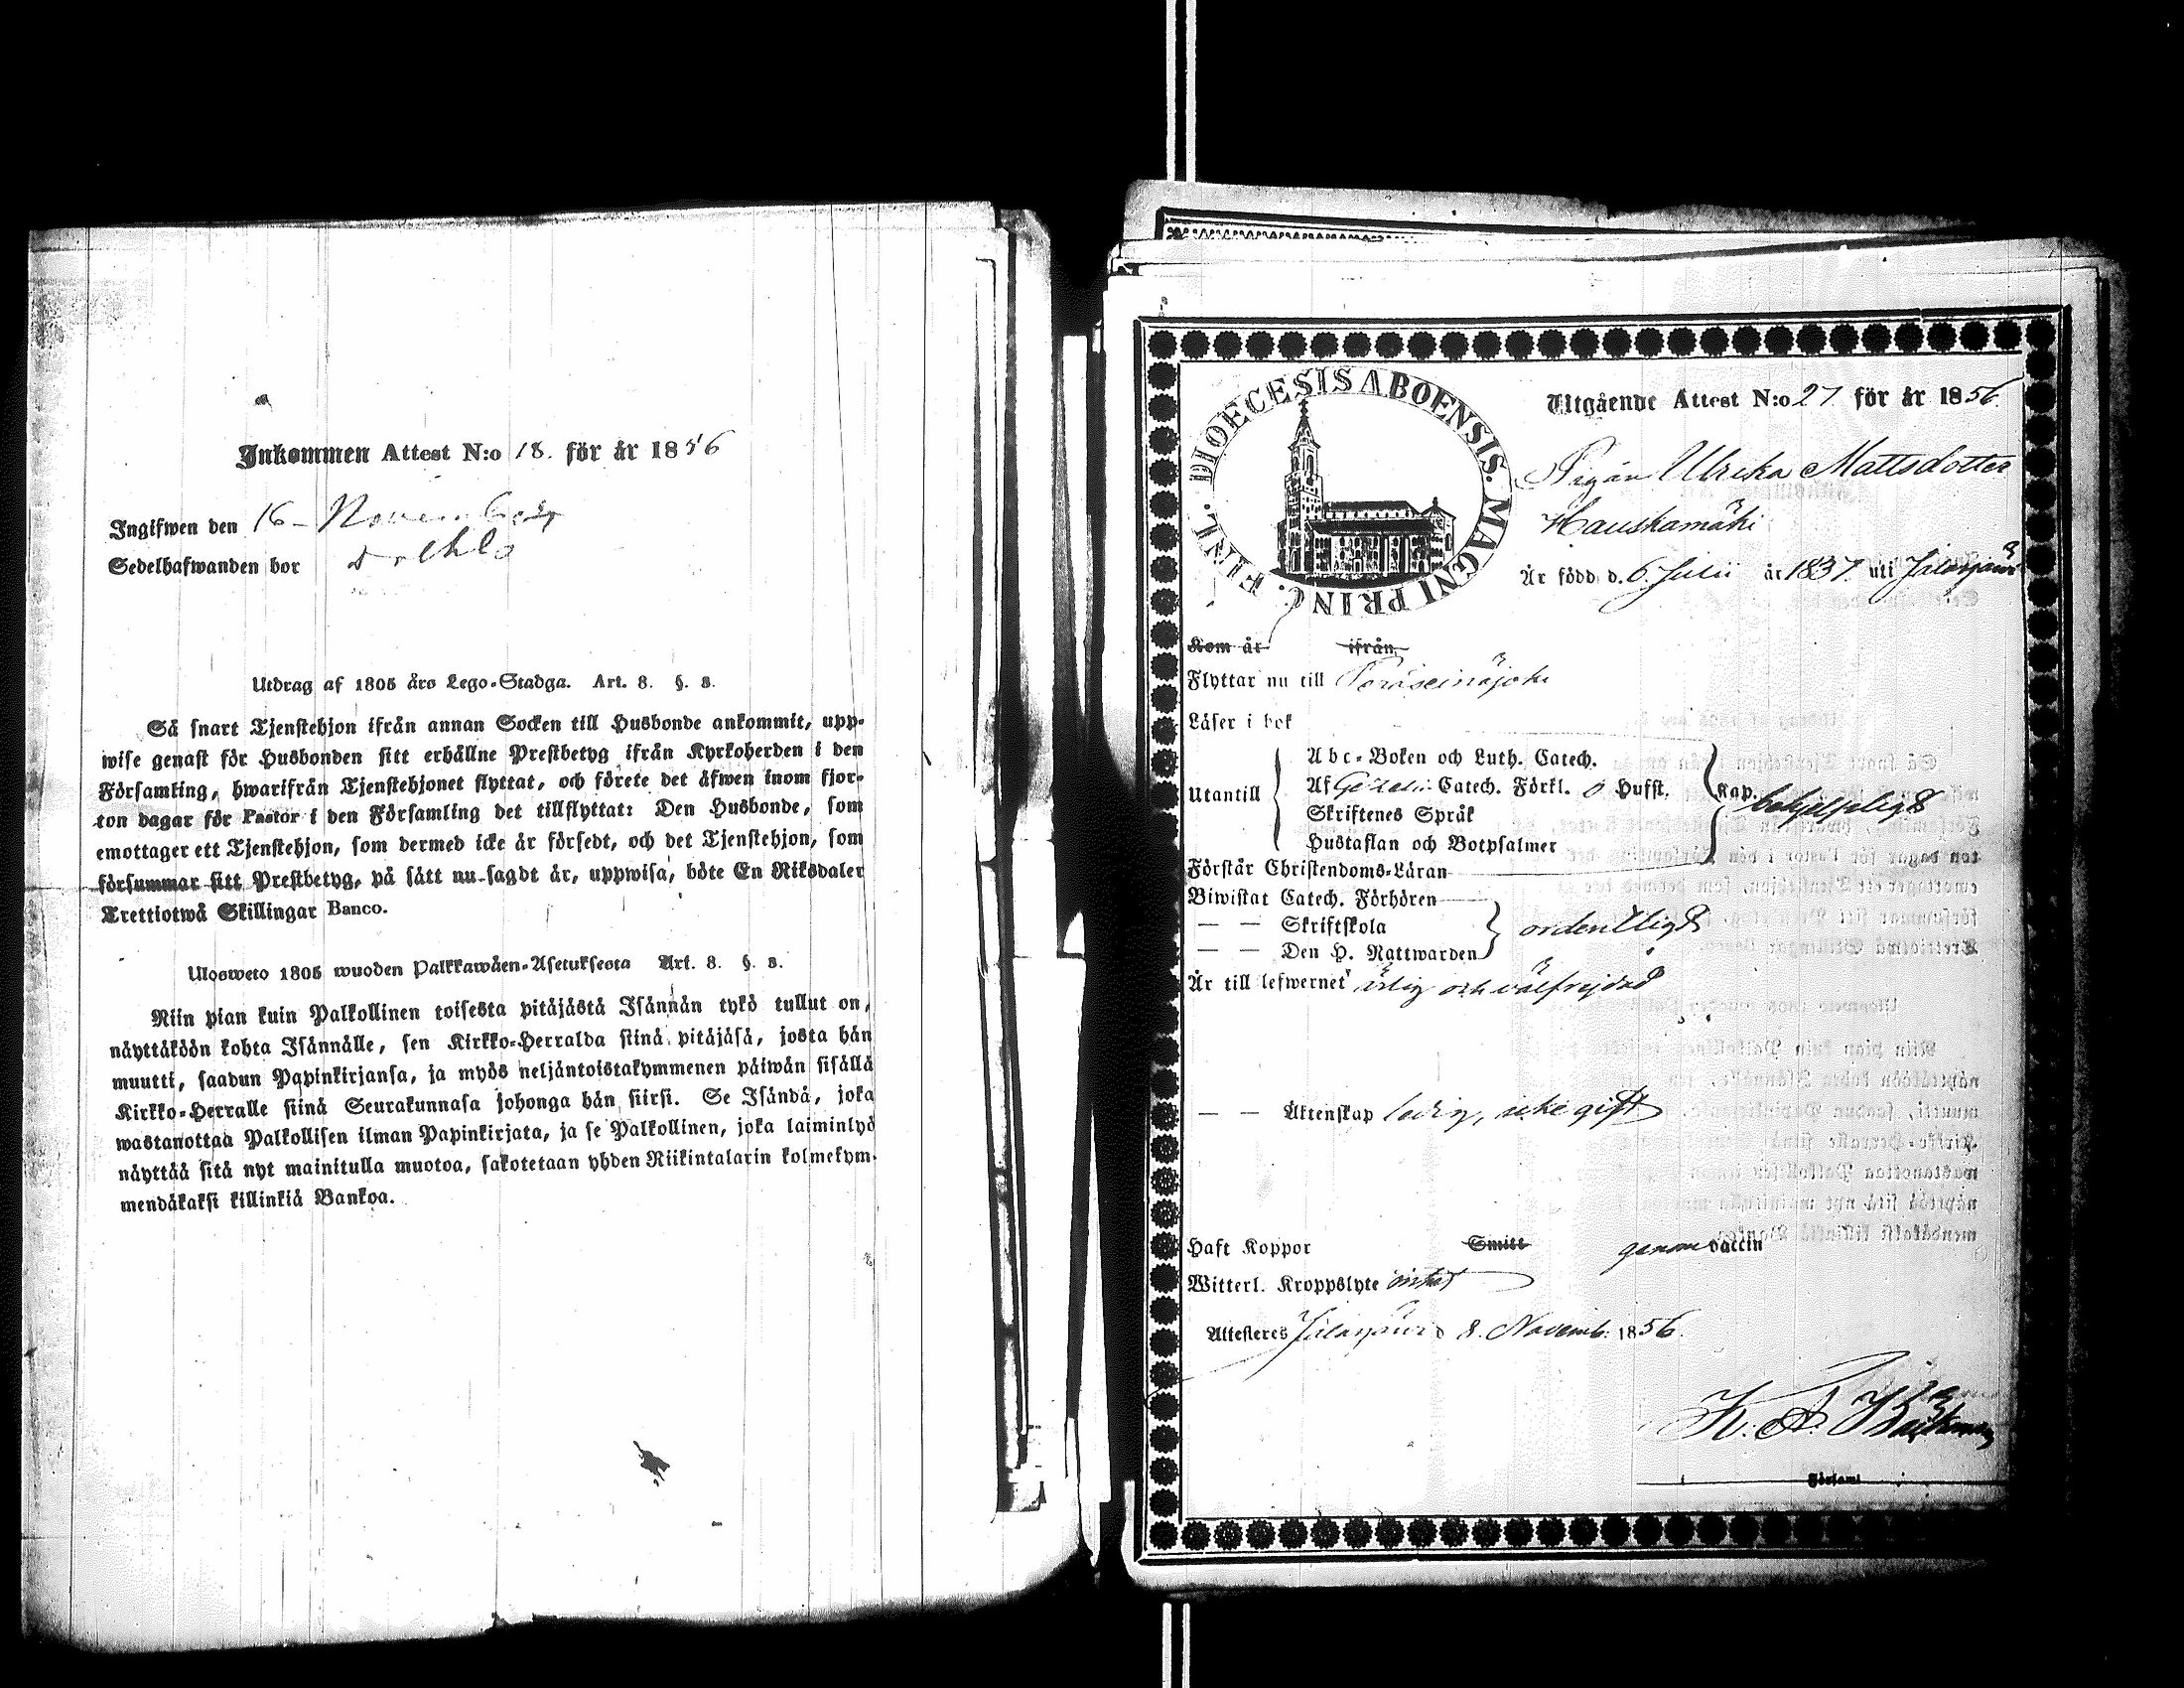 Inkommen Attest N:o 18. för år 1856
Ingifwen den 16 November
Sedelhafwanden bor
Utdrag af 1805 års Lego-Stadga. Art. 8. §. 3.
Så snart Tjenstehjon ifrån annan Socken till Husbonde ankommit, upp-
wise genast för Husbonden sitt erhållne Prestbetyg ifrån Kyrkoherden i den
Församling, hwarifrån Tjenstehjonet flyttat, och förete det äfwen inom fjor-
ton dagar för Pastor i den Församling det tillflyttat: Den Husbonde, som
emottager ett Tjenstehjon, som dermed icke är försedt, och det Tjenstehjon, som
försummar sitt Prestbetyg, på sätt nu sagdt är, uppwisa, böte En Riksdaler
Trettiotwå Skillingar Banco.
Ulosweto 1805 wuoden Palkkawäen-Asetuksesta Art. 8. §. 3.
Niin pian kuin Palkollinen toisesta pitäjästä Isännän tykö tullut on,
näyttäköön kohta Isännälle, sen Kirkko-Herralda siinä pitäjäsä, josta hän
muutti, saadun Papinkirjansa, ja myös neljäntoistakymmenen päiwän sisällä
Kirkko-Herralle siinä Seurakunnasa johonga hän siirsi. Se Isändä, joka
wastanottaa Palkollisen ilman Papinkirjata, ja se Palkollinen, joka laiminlyö
näyttää sitä nyt mainitulla muotoa, sakotetaan yhden Riikintalarin kolmekym-
mendäkaksi killinkiä Bankoa.
DIOECESIS ABOENSIS. MAGNI PRINC. FINL.
Utgående Attest N:o 27 för år 1856.
Pigan Ulrika Mattsdotter
Hauskamäki
Är född d. 6 Julii år 1837. uti Jalasjärvi
Kom år ifrån
Flyttar nu till Peräseinäjoki
Läser i bok
Utantill
Abc-Boken och Luth. Catech.
Af Gezelii Catech. Förkl. o Hufst. Kap.
Skriftenes Språk
Hustaflan och Botpsalmer
Förstår Christendoms-Läran
Biwistat Catech. Förhören
— — Skriftskola ordentligt
— — Den H. Nattwarden
Är till lefwernet ärlig och välfrejdad
— — Äktenskap ledig, icke gift
Haft Koppor Smitt genom vaccin
Witterl. Kroppslyte intet
Attesteres Jalasjärvi d 8. Novemb. 1856.
K. A. Bäckman
Församl